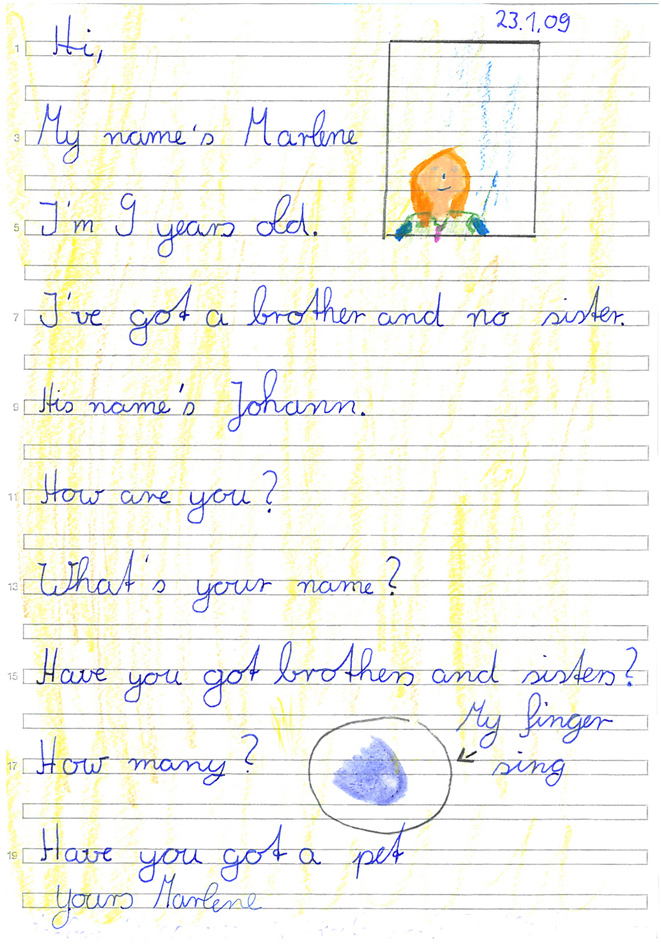 23.1.09
1 Hi,
3 My name's Marlene
5 I'm 9 years old.
7 I've got a brother and no sister.
9 His name's Johann.
11 How are you?
13 What's your name?
15 Have you got brothers and sisters?
My finger
17 How many? sing
19 Have you got a pet
yours Marlene